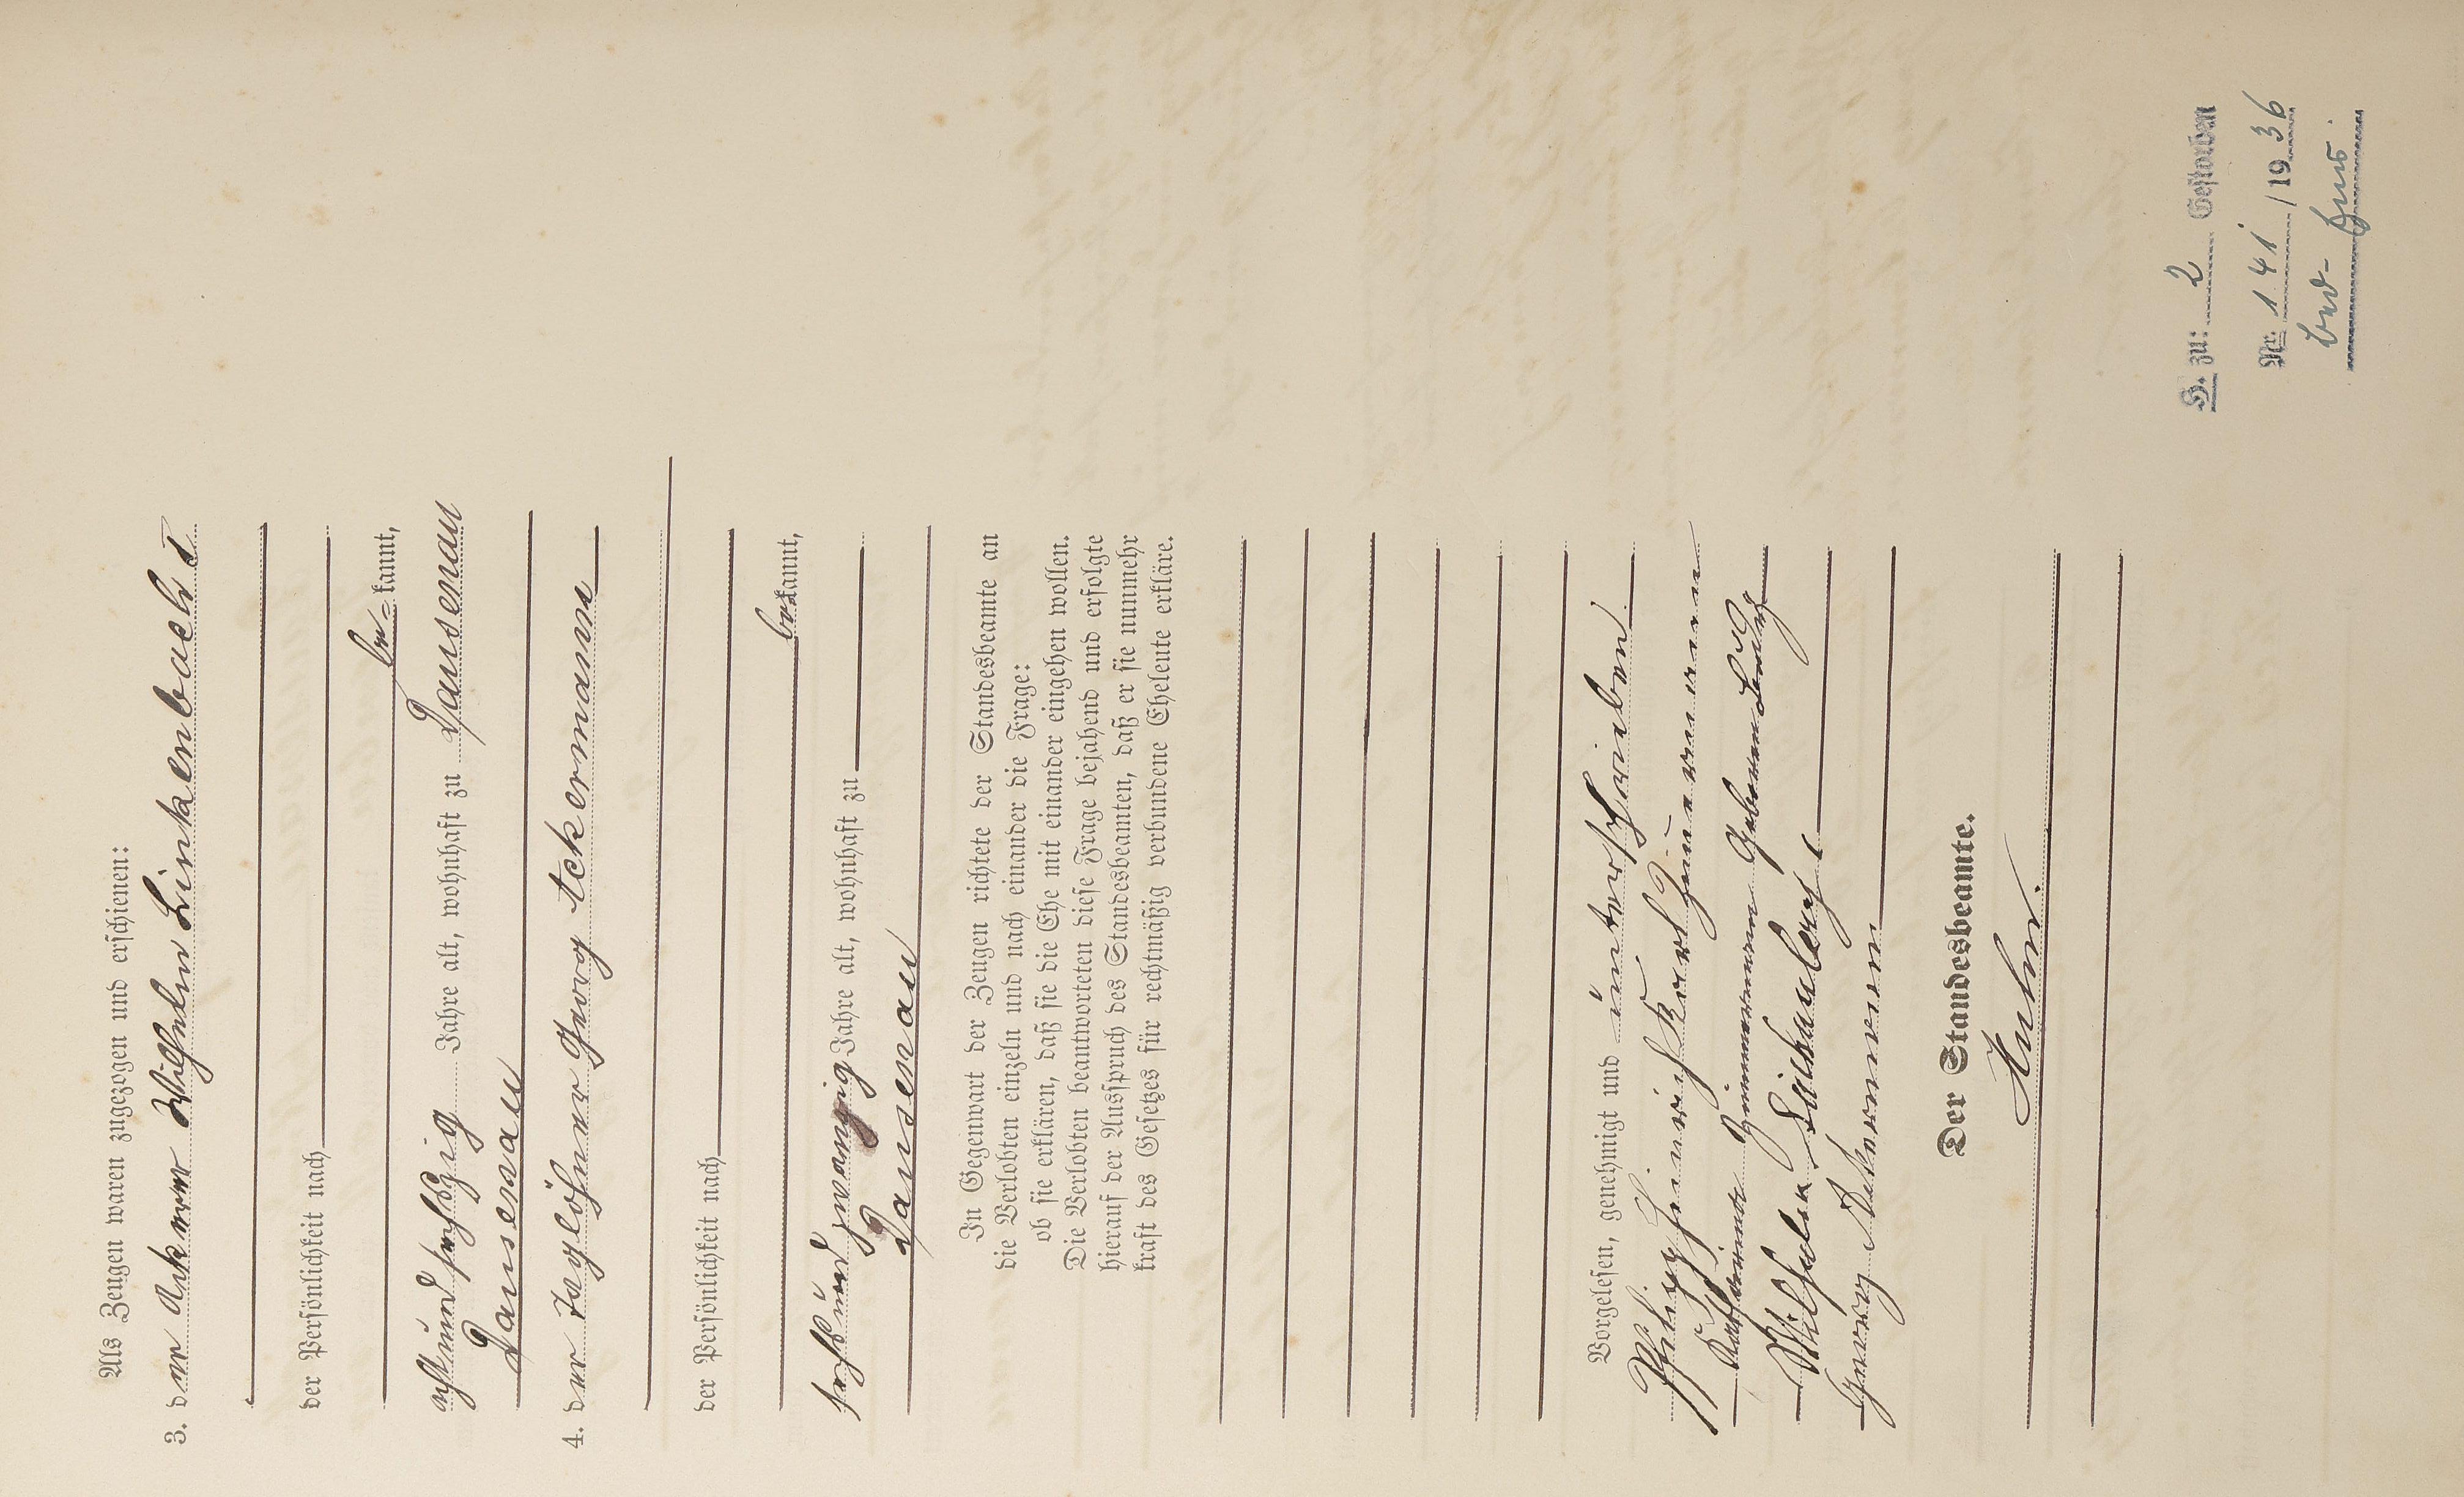 Als Zeugen waren zugezogen und erschienen:
3. der Ackerer Wilhelm Linkenbach I
der Persönlichkeit nach
be=kannt,
achtundsechszig Jahre alt, wohnhaft zu Dausenau
Dausenau
4. der Taglöhner Georg Ackermann
der Persönlichkeit nach
bekannt,
sechsundzwanzig Jahre alt, wohnhaft zu
Dausenau
In Gegenwart der Zeugen richtete der Standesbeamte an
die Verlobten einzeln und nach einander die Frage:
ob sie erklären, daß sie die Ehe mit einander eingehen wollen.
Die Verlobten beantworteten diese Frage bejahend und erfolgte
hierauf der Ausspruch des Standesbeamten, daß er sie nunmehr
kraft des Gesetzes für rechtmäßig verbundene Eheleute erkläre.
Vorgelesen, genehmigt und unterschrieben.
Philipp Heinrich Karl Zimmermann
Zimmermann geborene
Wilhelm Linkenbach I
Georg Ackermann
Der Standesbeamte.
H. zu: 2 Gestorben
Nr. 141 / 1936